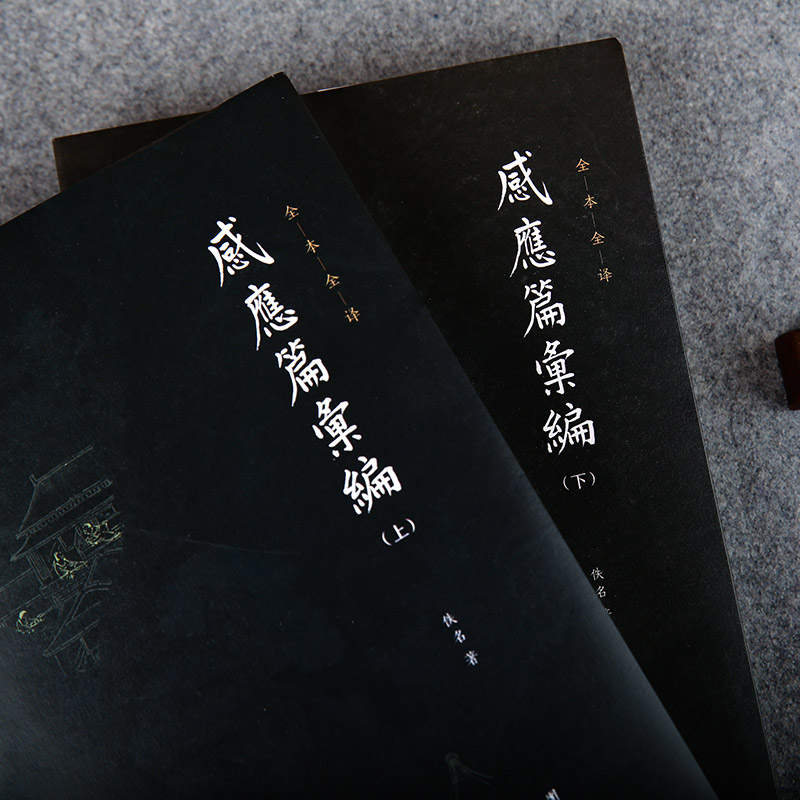 全本全译
感應篇彙編
（上）
佚名 著
全本全译
感應篇彙編
（下）
佚名